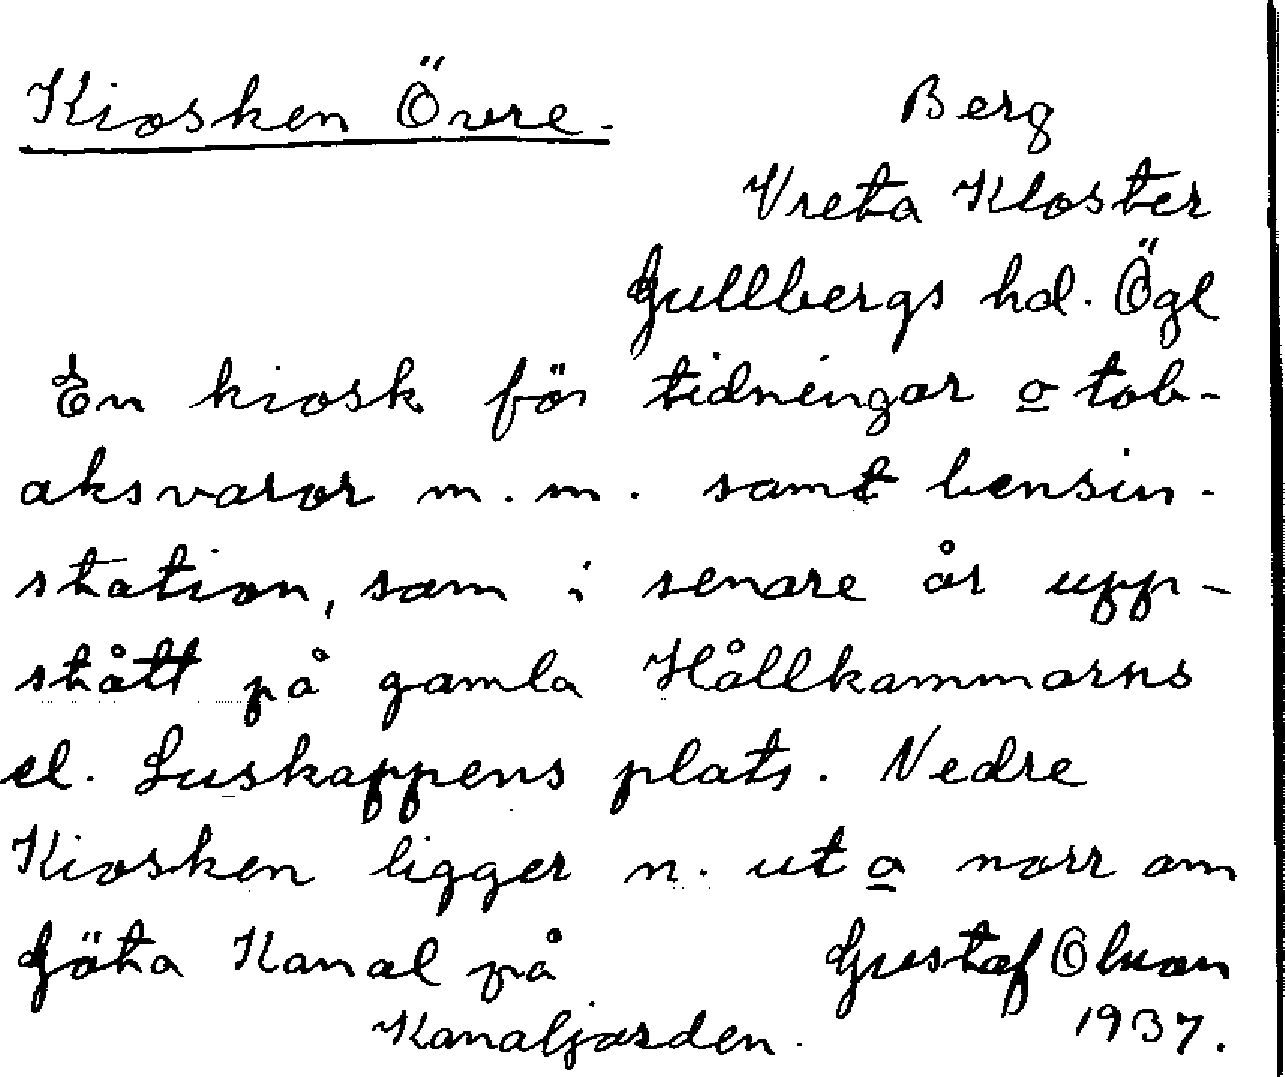 Kiosken Övre.
Berg
Vreta Kloster
Gullbergs hd. Ögl
En kiosk för tidningar o tob-
aksvaror m.m. samt bensin-
station, som i senare år upp-
stått på gamla Hållkammarns
el. Luskappens plats. Nedre
Kiosken ligger n. ut o norr om
Göta Kanal på
Kanaljorden.
Gustaf Olson
1937.